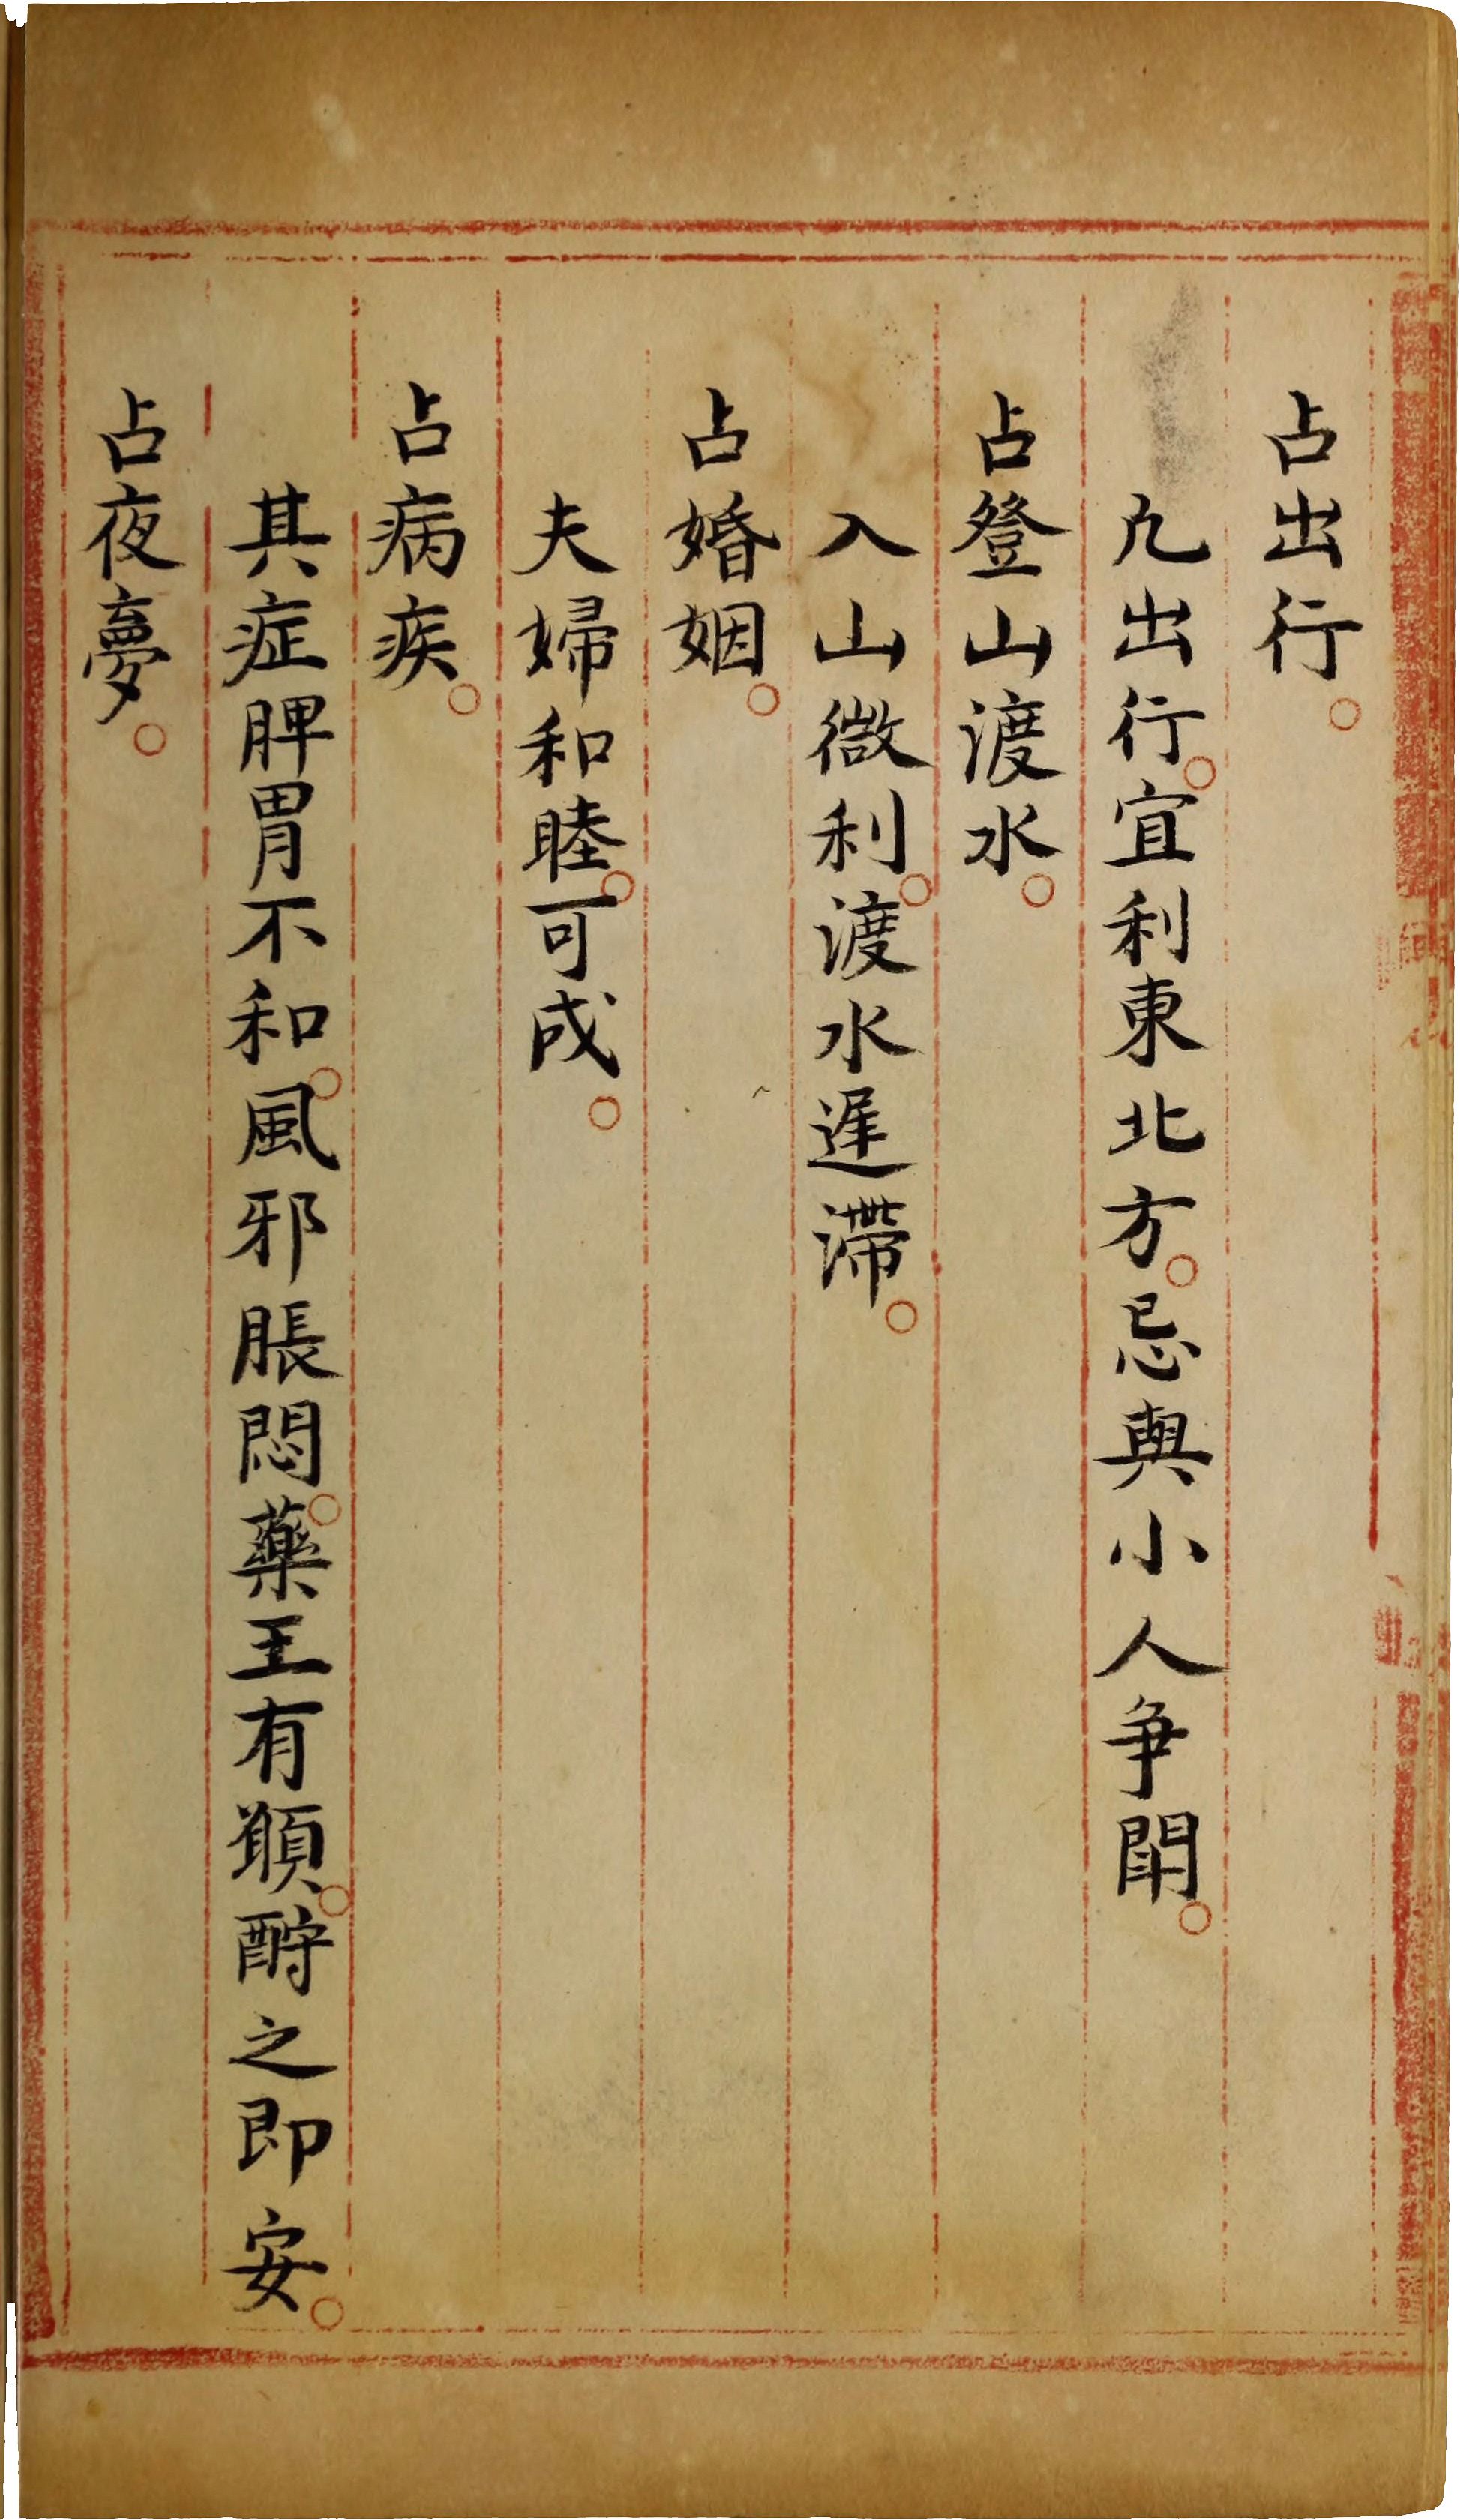 占出行。
凢出行。宜利東北方。忌與小人爭鬧。
占登山渡水。
入山微利。渡水遲滯。
占婚姻。
夫婦和睦。可成。
占病疾。
其症脾胃不和。風邪脹悶。藥王有願。酧之即安。
占夜夢。